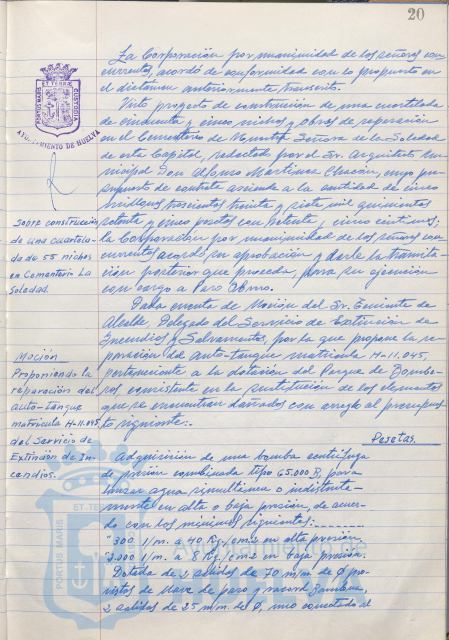 20
La Corporación por unanimidad de los señores con-
currentes, acordó de conformidad con lo propuesto en
el dictamen anteriormente transcrito.
Visto proyecto de construcción de una cuartelada
de cincuenta y cinco nichos y obras de reparación
en el Cementerio de Nuestra Señora de la Soledad
de esta Capital, redactado por el Sr. Arquitecto Mu-
nicipal Don Alfonso Martínez Chacón, cuyo pre-
supuesto de contrata asciende a la cantidad de cinco
trescientas treinta y siete mil quinientas
setenta y cinco pesetas con setenta y cinco céntimos;
la Corporación por unanimidad de los señores con-
currentes acordó su aprobación y darle la tramita-
ción posterior que proceda, para su ejecución
con cargo a Paro Obrero.
Dada cuenta de Moción del Sr. Teniente de
Alcalde, Delegado del Servicio de Extinción de
Incendios y Salvamentos, por la que propone la re-
paración del auto-tanque matrícula H-11.045,
perteneciente a la dotación del Parque de Bombe-
ros consistente en la sustitución de los elementos
que se encuentran dañados con arreglo al presupues-
to siguiente:
Pesetas.
Adquisición de una bomba centrífuga
de presión combinada tipo 65.000 R, para
lanzar agua simultánea o indistinta-
mente en alta o baja presión, de acuer-
do con los mínimos siguientes:
"300 l/m. a 40 Kg./cm2 en alta presión.
"2.000 l/m. a 8 Kg/cm2 en baja presión.
Dotada de 2 salidas de 70 m/m. de Ø pro-
vistas de llave de paso y racord Barcelona,
2 salidas de 25 m/m. de Ø, una conectada al
PORTUS MARIS ET TERRAE CUSTODIA
AYUNTAMIENTO DE HUELVA
Sobre construcción
de una cuartela-
da de 55 nichos
en Cementerio La
Soledad.
Moción
Proponiendo la
reparación del
auto-tanque
matrícula H-11.045
del Servicio de
Extinción de In-
cendios.